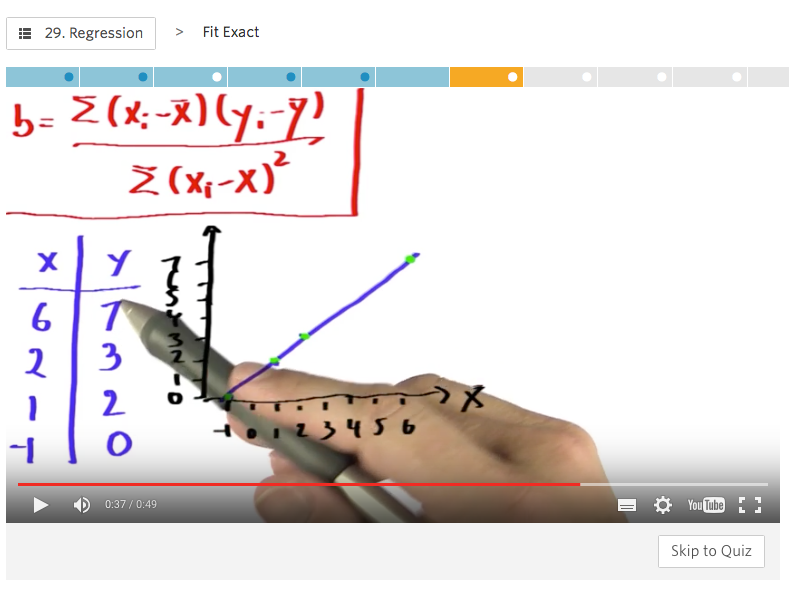 29. Regression > Fit Exact
b= Σ(xi-x̄)(yi-ȳ)
Σ(xi-x)²
X Y
6 7
2 3
1 2
-1 0
7
6
5
4
3
2
1
0
-1 0 1 2 3 4 5 6
X
0:37 / 0:49
YouTube
Skip to Quiz